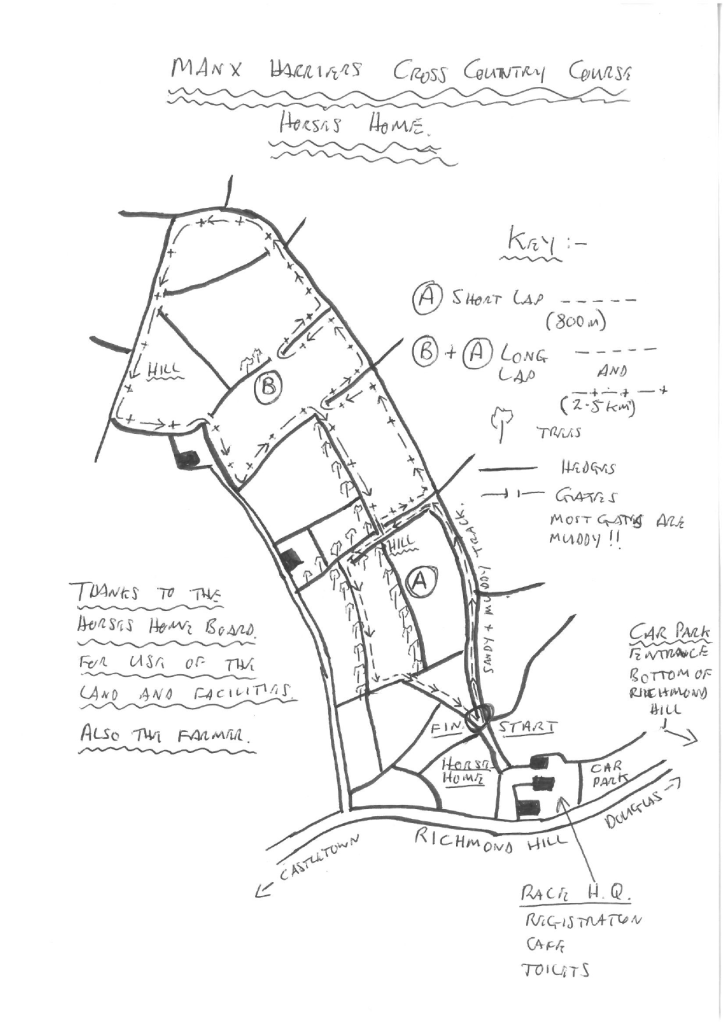 MANX HARRIERS CROSS COUNTRY COURSE
HORSES HOME.
KEY :-
A SHORT LAP
(800m)
B + A LONG LAP AND
(2.5 KM)
TREES
HEDGES
GATES
MOST GATES ARE
MUDDY !!
HILL
B
HILL
A
TRACK.
THANKS TO THE
HORSES HOME BOARD.
FOR USE OF THE
LAND AND FACILITIES.
ALSO THE FARMER.
CAR PARK
ENTRANCE
BOTTOM OF
RICHMOND
HILL
FIN START
HORSE
HOME
CAR
PARK
DOUGLAS
RICHMOND HILL
CASTLETOWN
RACE H.Q.
REGISTRATION
CAFE
TOILETS